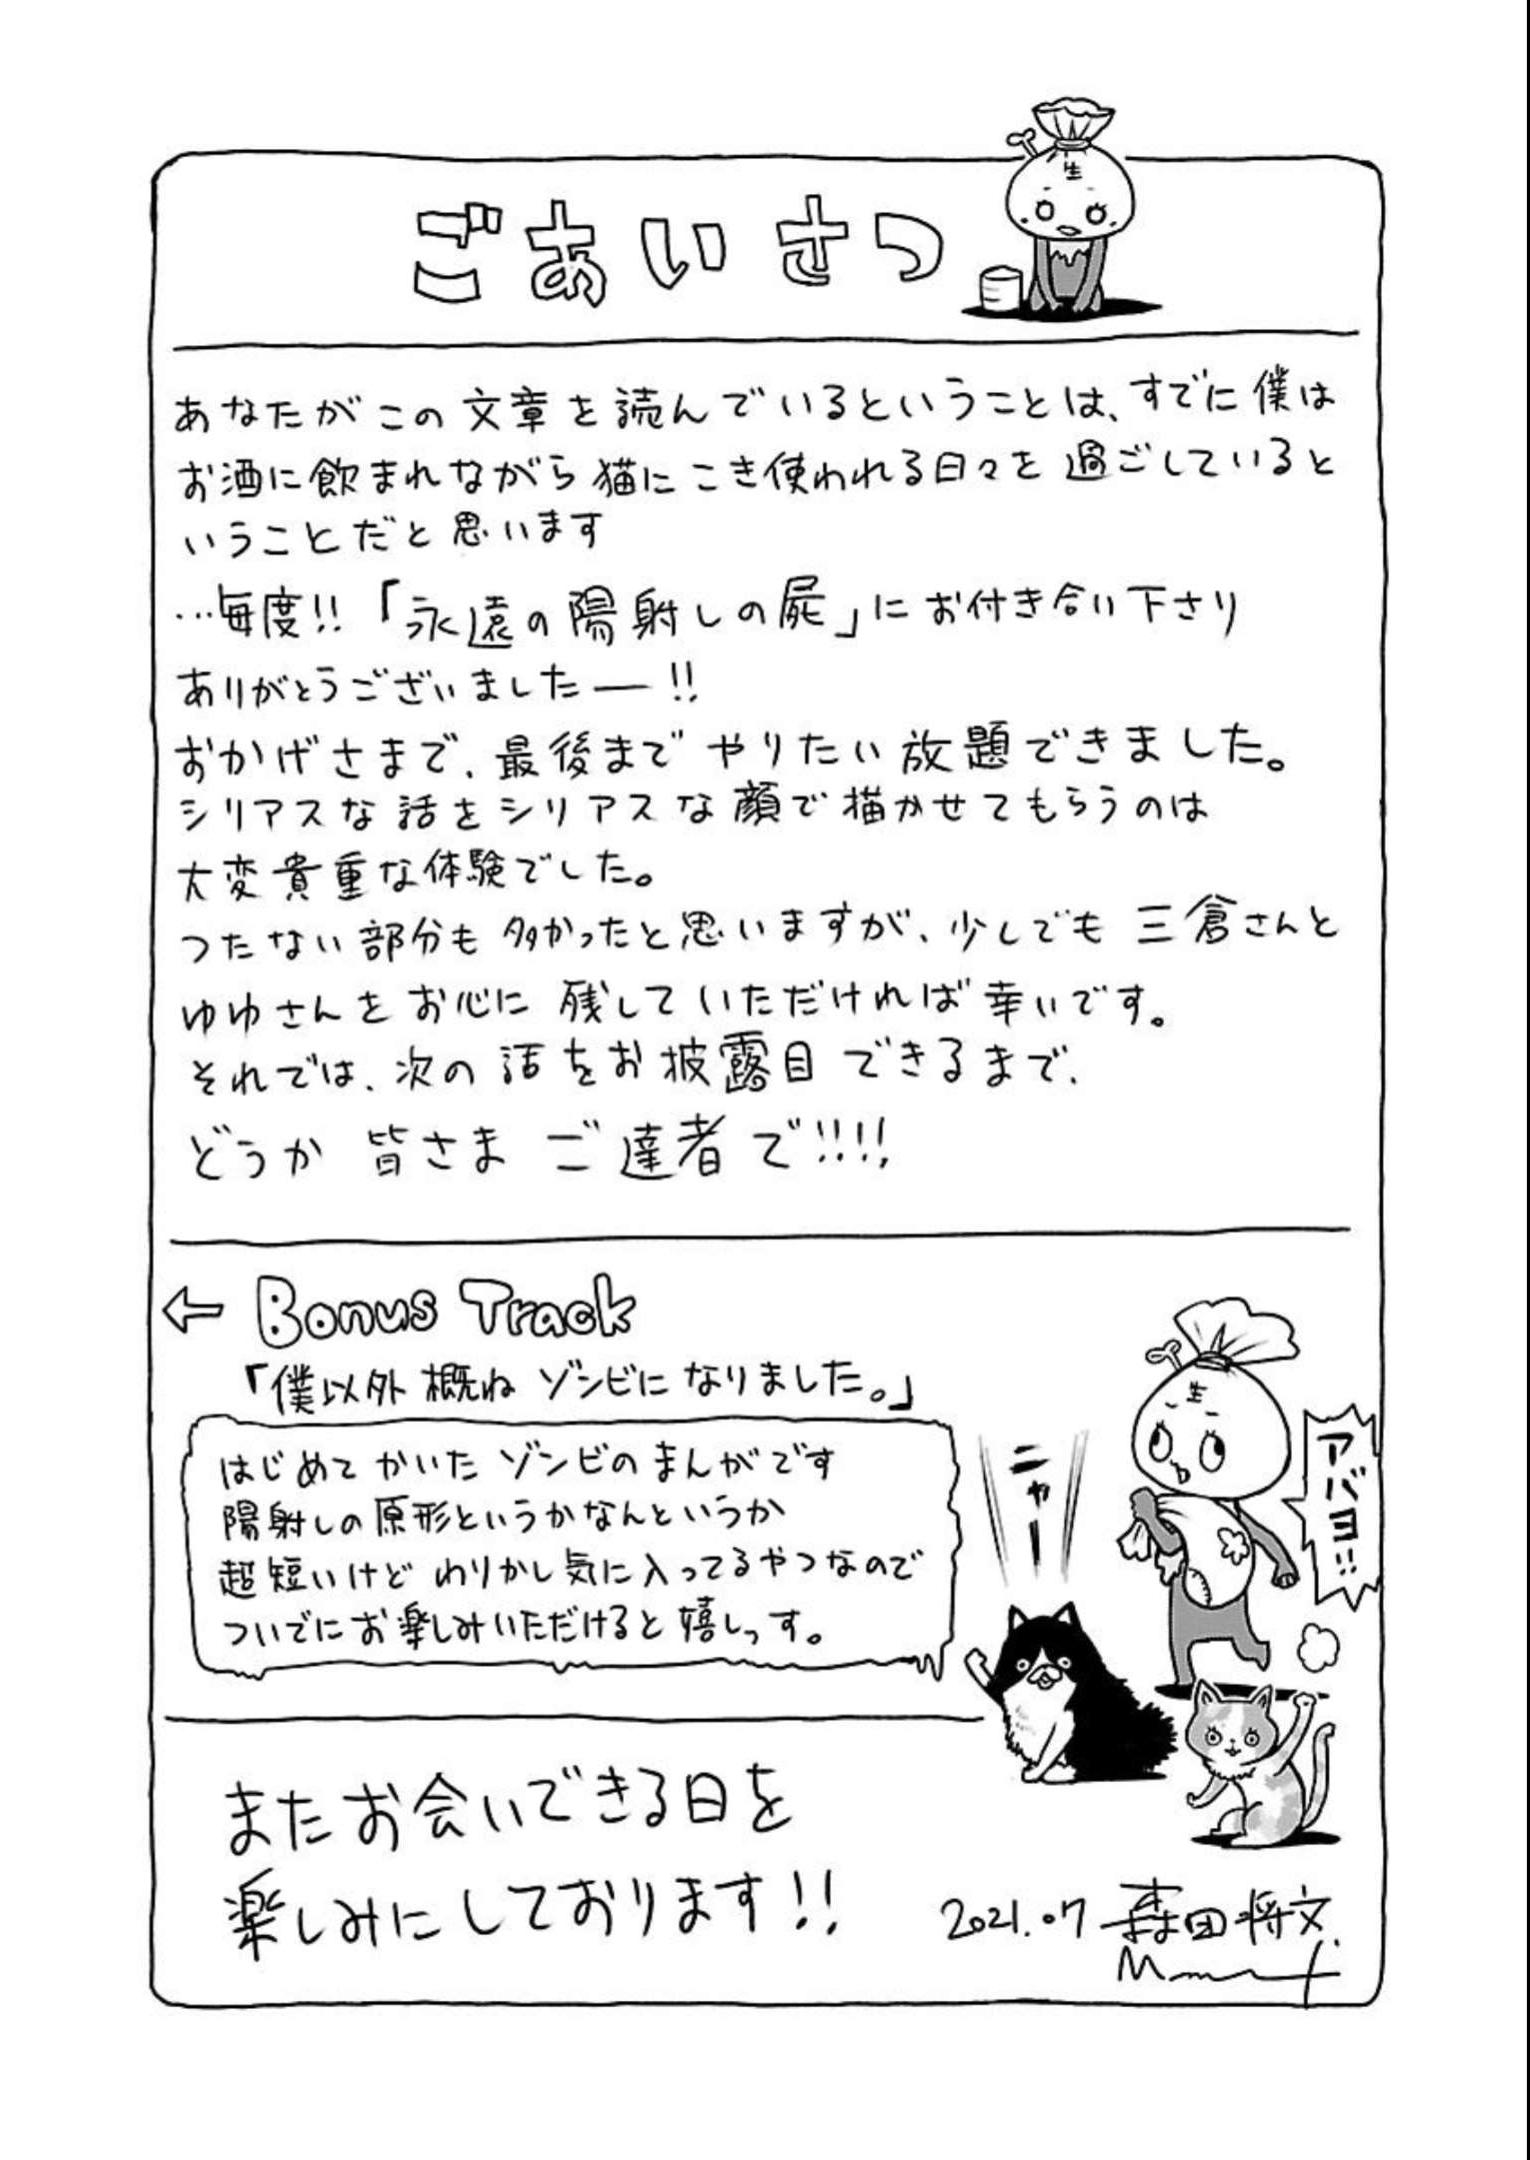 ごあいさつ
生
あなたがこの文章を読んでいるということは、すでに僕は
お酒に飲まれながら猫にこき使われる日々を過ごしていると
いうことだと思います
…毎度!!「永遠の陽射しの屍」にお付き合い下さり
ありがとうございましたー!!
おかげさまで、最後までやりたい放題できました。
シリアスな話をシリアスな顔で描かせてもらうのは
大変貴重な体験でした。
つたない部分も多かったと思いますが、少しでも三倉さんと
ゆゆさんをお心に残していただければ幸いです。
それでは、次の話をお披露目できるまで、
どうか皆さまご達者で!!!!
← Bonus Track
「僕以外概ねゾンビになりました。」
はじめてかいたゾンビのまんがです
陽射しの原形というかなんというか
超短いけどわりかし気に入ってるやつなので
ついでにお楽しみいただけると嬉しっす。
ニャー
生
アバヨ!!
またお会いできる日を
楽しみにしております!!
2021.07 森田将文